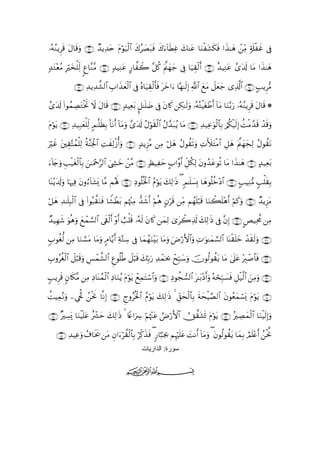 غَفْلَةٍ مِّنْ هَٰذَا فَكَشَفْنَا عَنكَ غِطَاءَكَ فَبَصَرُكَ الْيَوْمَ حَدِيدٌ ۝ وَقَالَ قَرِينُهُ
هَٰذَا مَا لَدَيَّ عَتِيدٌ ۝ أَلْقِيَا فِي جَهَنَّمَ كُلَّ كَفَّارٍ عَنِيدٍ ۝ مَّنَّاعٍ لِّلْخَيْرِ مُعْتَدٍ
مُّرِيبٍ ۝ الَّذِي جَعَلَ مَعَ اللَّهِ إِلَٰهًا آخَرَ فَأَلْقِيَاهُ فِي الْعَذَابِ الشَّدِيدِ ۝
۞ قَالَ قَرِينُهُ رَبَّنَا مَا أَطْغَيْتُهُ وَلَٰكِن كَانَ فِي ضَلَالٍ بَعِيدٍ ۝ قَالَ لَا تَخْتَصِمُوا لَدَيَّ
وَقَدْ قَدَّمْتُ إِلَيْكُم بِالْوَعِيدِ ۝ مَا يُبَدَّلُ الْقَوْلُ لَدَيَّ وَمَا أَنَا بِظَلَّامٍ لِّلْعَبِيدِ ۝ يَوْمَ
نَقُولُ لِجَهَنَّمَ هَلِ امْتَلَأْتِ وَتَقُولُ هَلْ مِن مَّزِيدٍ ۝ وَأُزْلِفَتِ الْجَنَّةُ لِلْمُتَّقِينَ غَيْرَ
بَعِيدٍ ۝ هَٰذَا مَا تُوعَدُونَ لِكُلِّ أَوَّابٍ حَفِيظٍ ۝ مَّنْ خَشِيَ الرَّحْمَٰنَ بِالْغَيْبِ وَجَاءَ
بِقَلْبٍ مُّنِيبٍ ۝ ادْخُلُوهَا بِسَلَامٍ ۖ ذَٰلِكَ يَوْمُ الْخُلُودِ ۝ لَهُم مَّا يَشَاءُونَ فِيهَا وَلَدَيْنَا
مَزِيدٌ ۝ وَكَمْ أَهْلَكْنَا قَبْلَهُم مِّن قَرْنٍ هُمْ أَشَدُّ مِنْهُم بَطْشًا فَنَقَّبُوا فِي الْبِلَادِ هَلْ
مِن مَّحِيصٍ ۝ إِنَّ فِي ذَٰلِكَ لَذِكْرَىٰ لِمَن كَانَ لَهُ قَلْبٌ أَوْ أَلْقَى السَّمْعَ وَهُوَ شَهِيدٌ
۝ وَلَقَدْ خَلَقْنَا السَّمَاوَاتِ وَالْأَرْضَ وَمَا بَيْنَهُمَا فِي سِتَّةِ أَيَّامٍ وَمَا مَسَّنَا مِن لُّغُوبٍ
۝ فَاصْبِرْ عَلَىٰ مَا يَقُولُونَ وَسَبِّحْ بِحَمْدِ رَبِّكَ قَبْلَ طُلُوعِ الشَّمْسِ وَقَبْلَ الْغُرُوبِ
۝ وَمِنَ اللَّيْلِ فَسَبِّحْهُ وَأَدْبَارَ السُّجُودِ ۝ وَاسْتَمِعْ يَوْمَ يُنَادِ الْمُنَادِ مِن مَّكَانٍ قَرِيبٍ
۝ يَوْمَ يَسْمَعُونَ الصَّيْحَةَ بِالْحَقِّ ۚ ذَٰلِكَ يَوْمُ الْخُرُوجِ ۝ إِنَّا نَحْنُ نُحْيِي وَنُمِيتُ
وَإِلَيْنَا الْمَصِيرُ ۝ يَوْمَ تَشَقَّقُ الْأَرْضُ عَنْهُمْ سِرَاعًا ۚ ذَٰلِكَ حَشْرٌ عَلَيْنَا يَسِيرٌ ۝
نَّحْنُ أَعْلَمُ بِمَا يَقُولُونَ ۖ وَمَا أَنتَ عَلَيْهِم بِجَبَّارٍ ۖ فَذَكِّرْ بِالْقُرْآنِ مَن يَخَافُ وَعِيدِ ۝
سورة: الذاريات
بِسْمِ اللَّهِ الرَّحْمَٰنِ الرَّحِيمِ